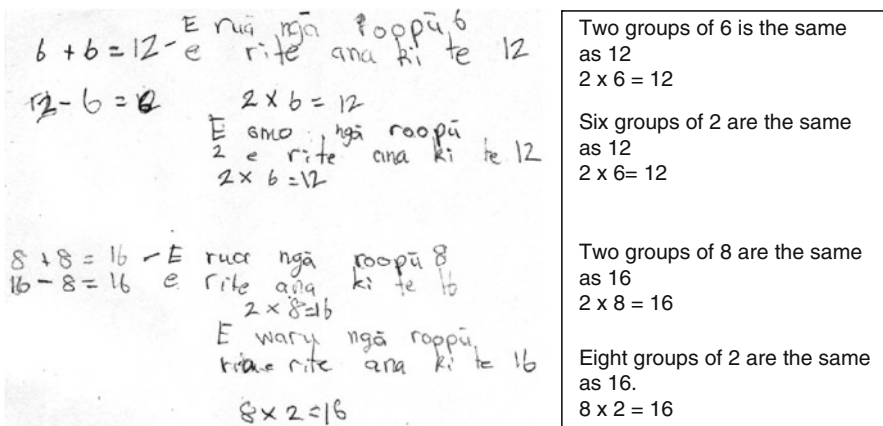 E rua ngā roopū 6
6 + 6 = 12 - e rite ana ki te 12
12 - 6 = 6
2 x 6 = 12
E ono ngā roopū
2 e rite ana ki te 12
2 x 6 = 12
8 + 8 = 16 - E rua ngā roopū 8
16 - 8 = 16 e rite ana ki te 16
2 x 8 = 16
E waru ngā roppū
e rite ana ki te 16
8 x 2 = 16
Two groups of 6 is the same
as 12
2 x 6 = 12
Six groups of 2 are the same
as 12
2 x 6= 12
Two groups of 8 are the same
as 16
2 x 8 = 16
Eight groups of 2 are the same
as 16.
8 x 2 = 16